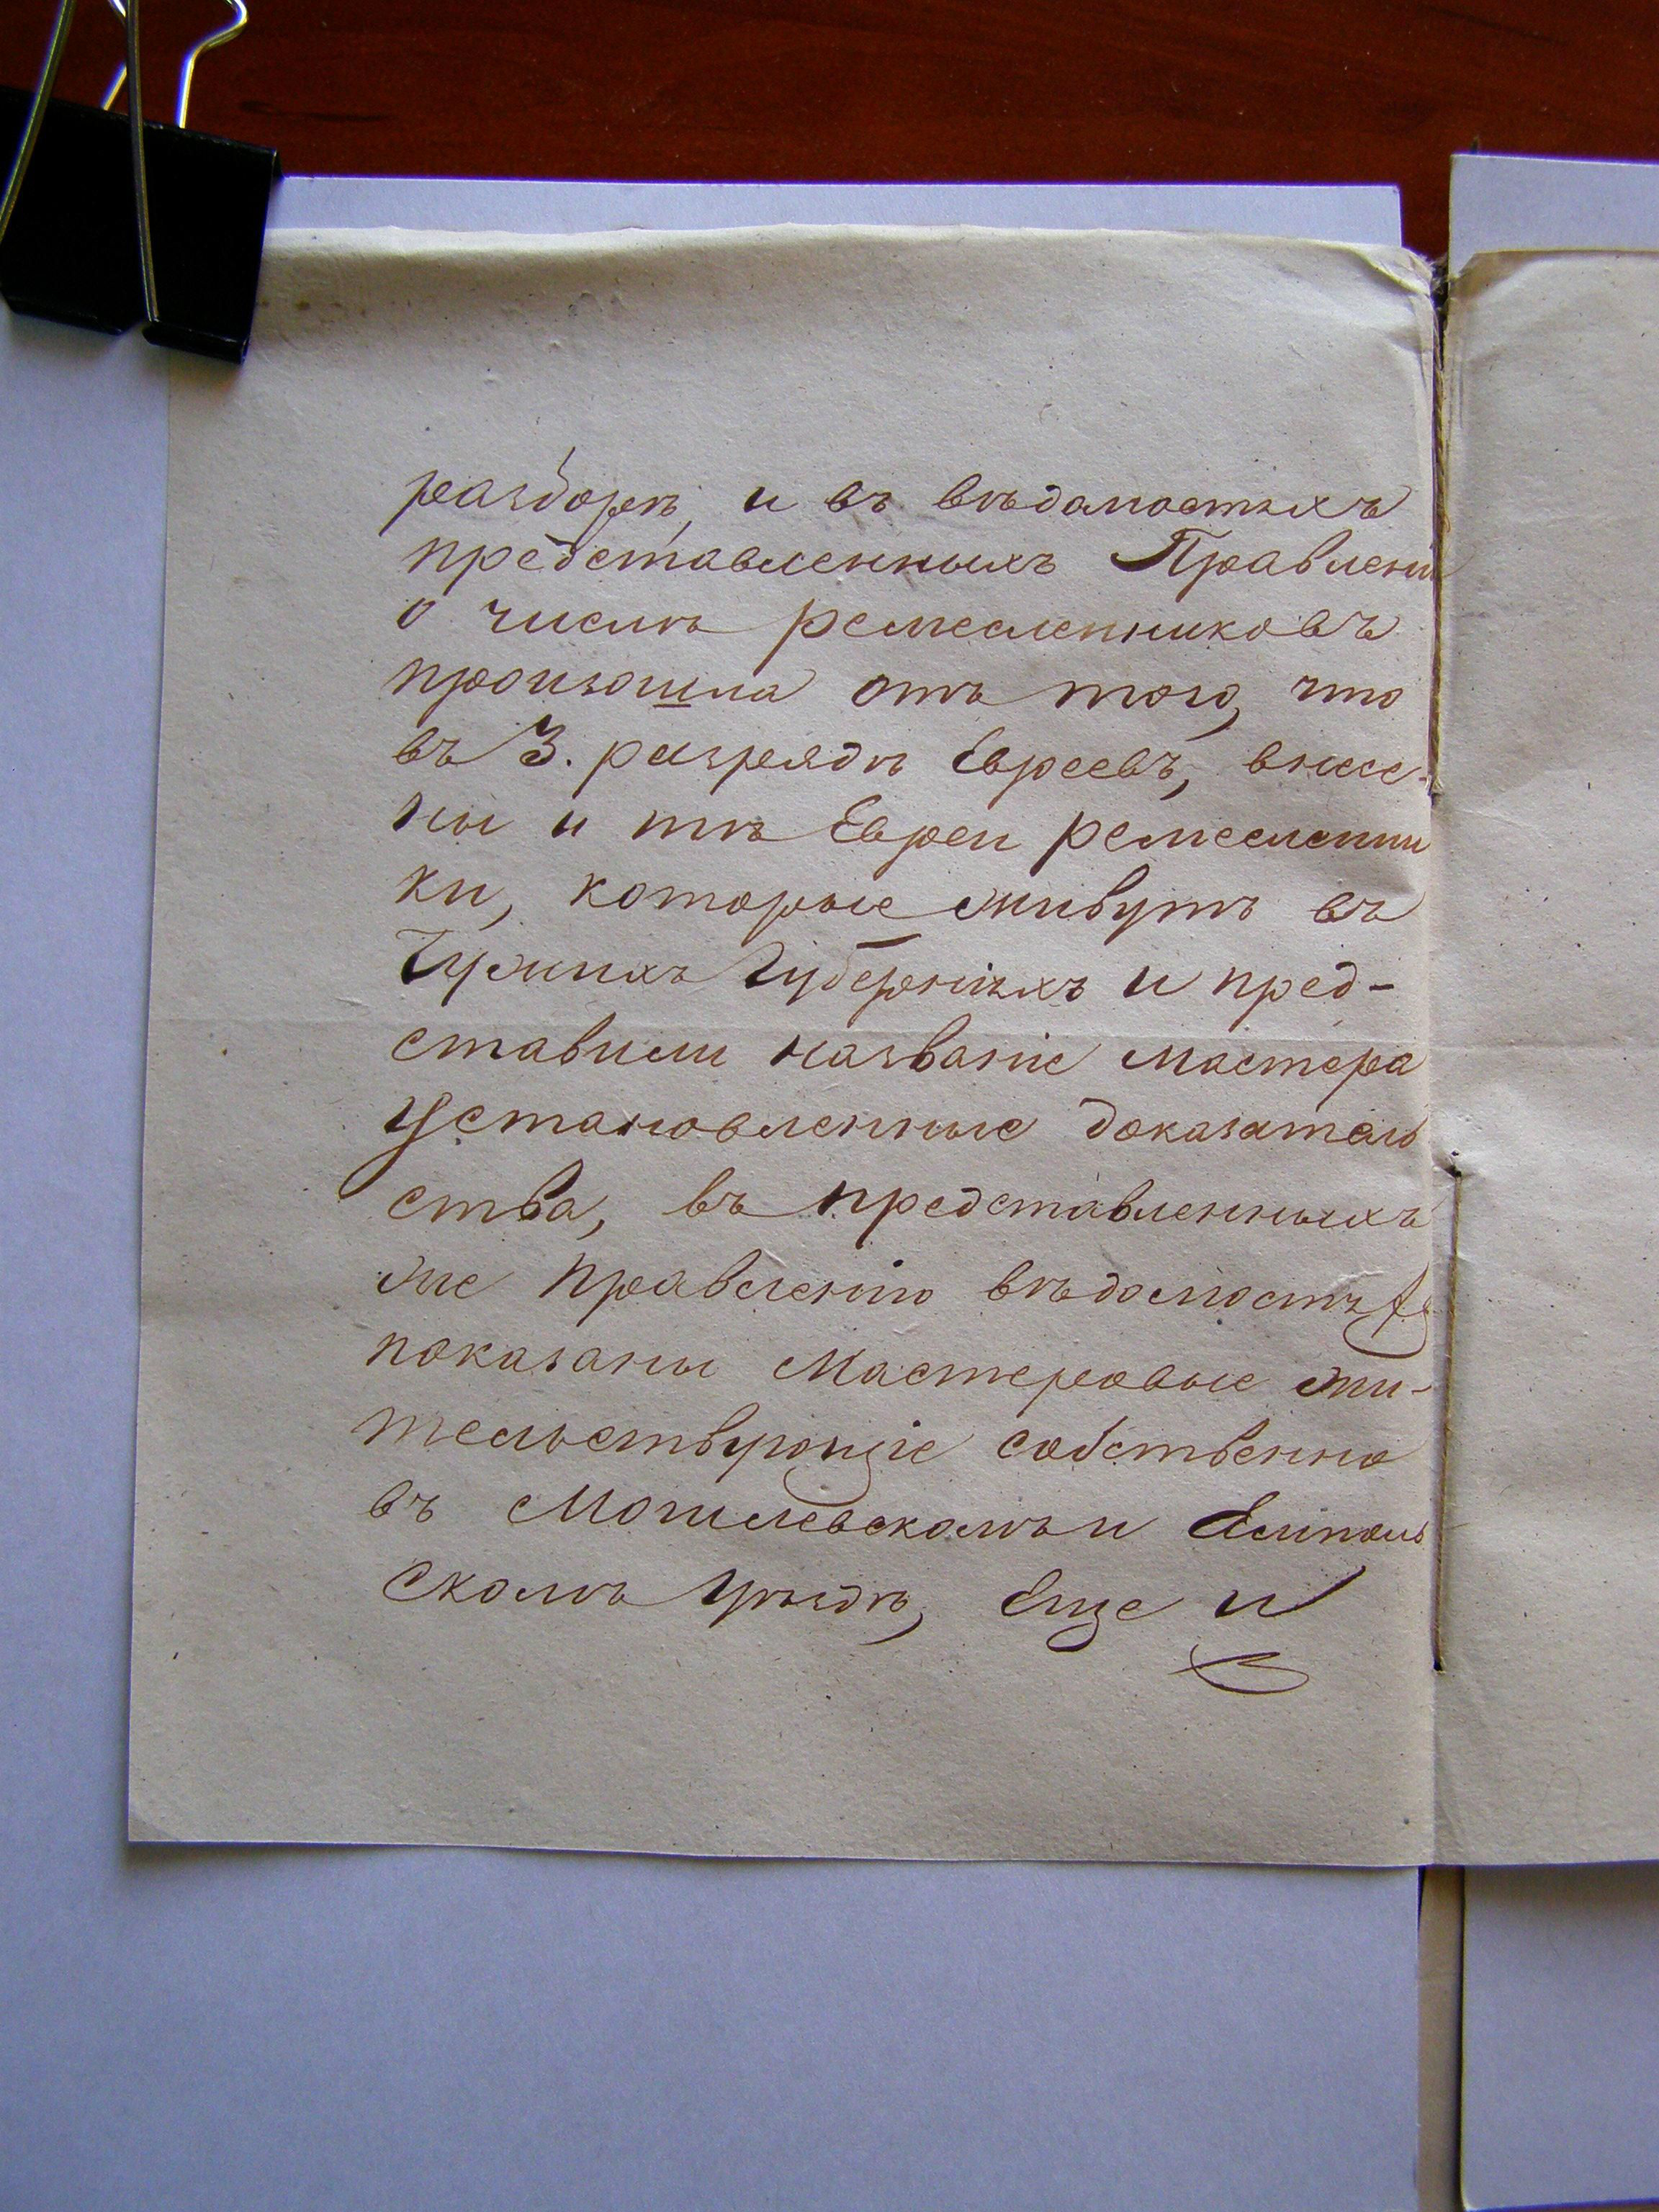 разборѣ, и въ вѣдомостяхъ
представленныхъ Правлені
о числѣ ремесленниковъ
произошла отъ того, что
въ 3. разрядѣ Евреевъ, внесе-
ны и тѣ Евреи ремесленни
ки, которые живутъ въ
Чужихъ Губерніяхъ и пред-
ставили названіе мастера
Установленные доказатель
ства, въ представленныхъ
же Правленію вѣдомостяхъ
показаны Мастеровые жи-
тельствующіе собственно
въ Могилевскомъ и
скомъ Уѣздѣ, Еще и